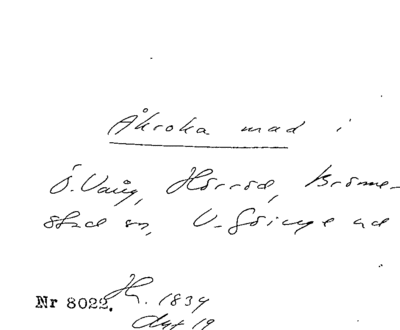 Åkroka mad i
Ö. Vång, Hörröd, Brönne-
stad sn, V. Göinge hd
Nr 8022. Hk. 1834
akt 19